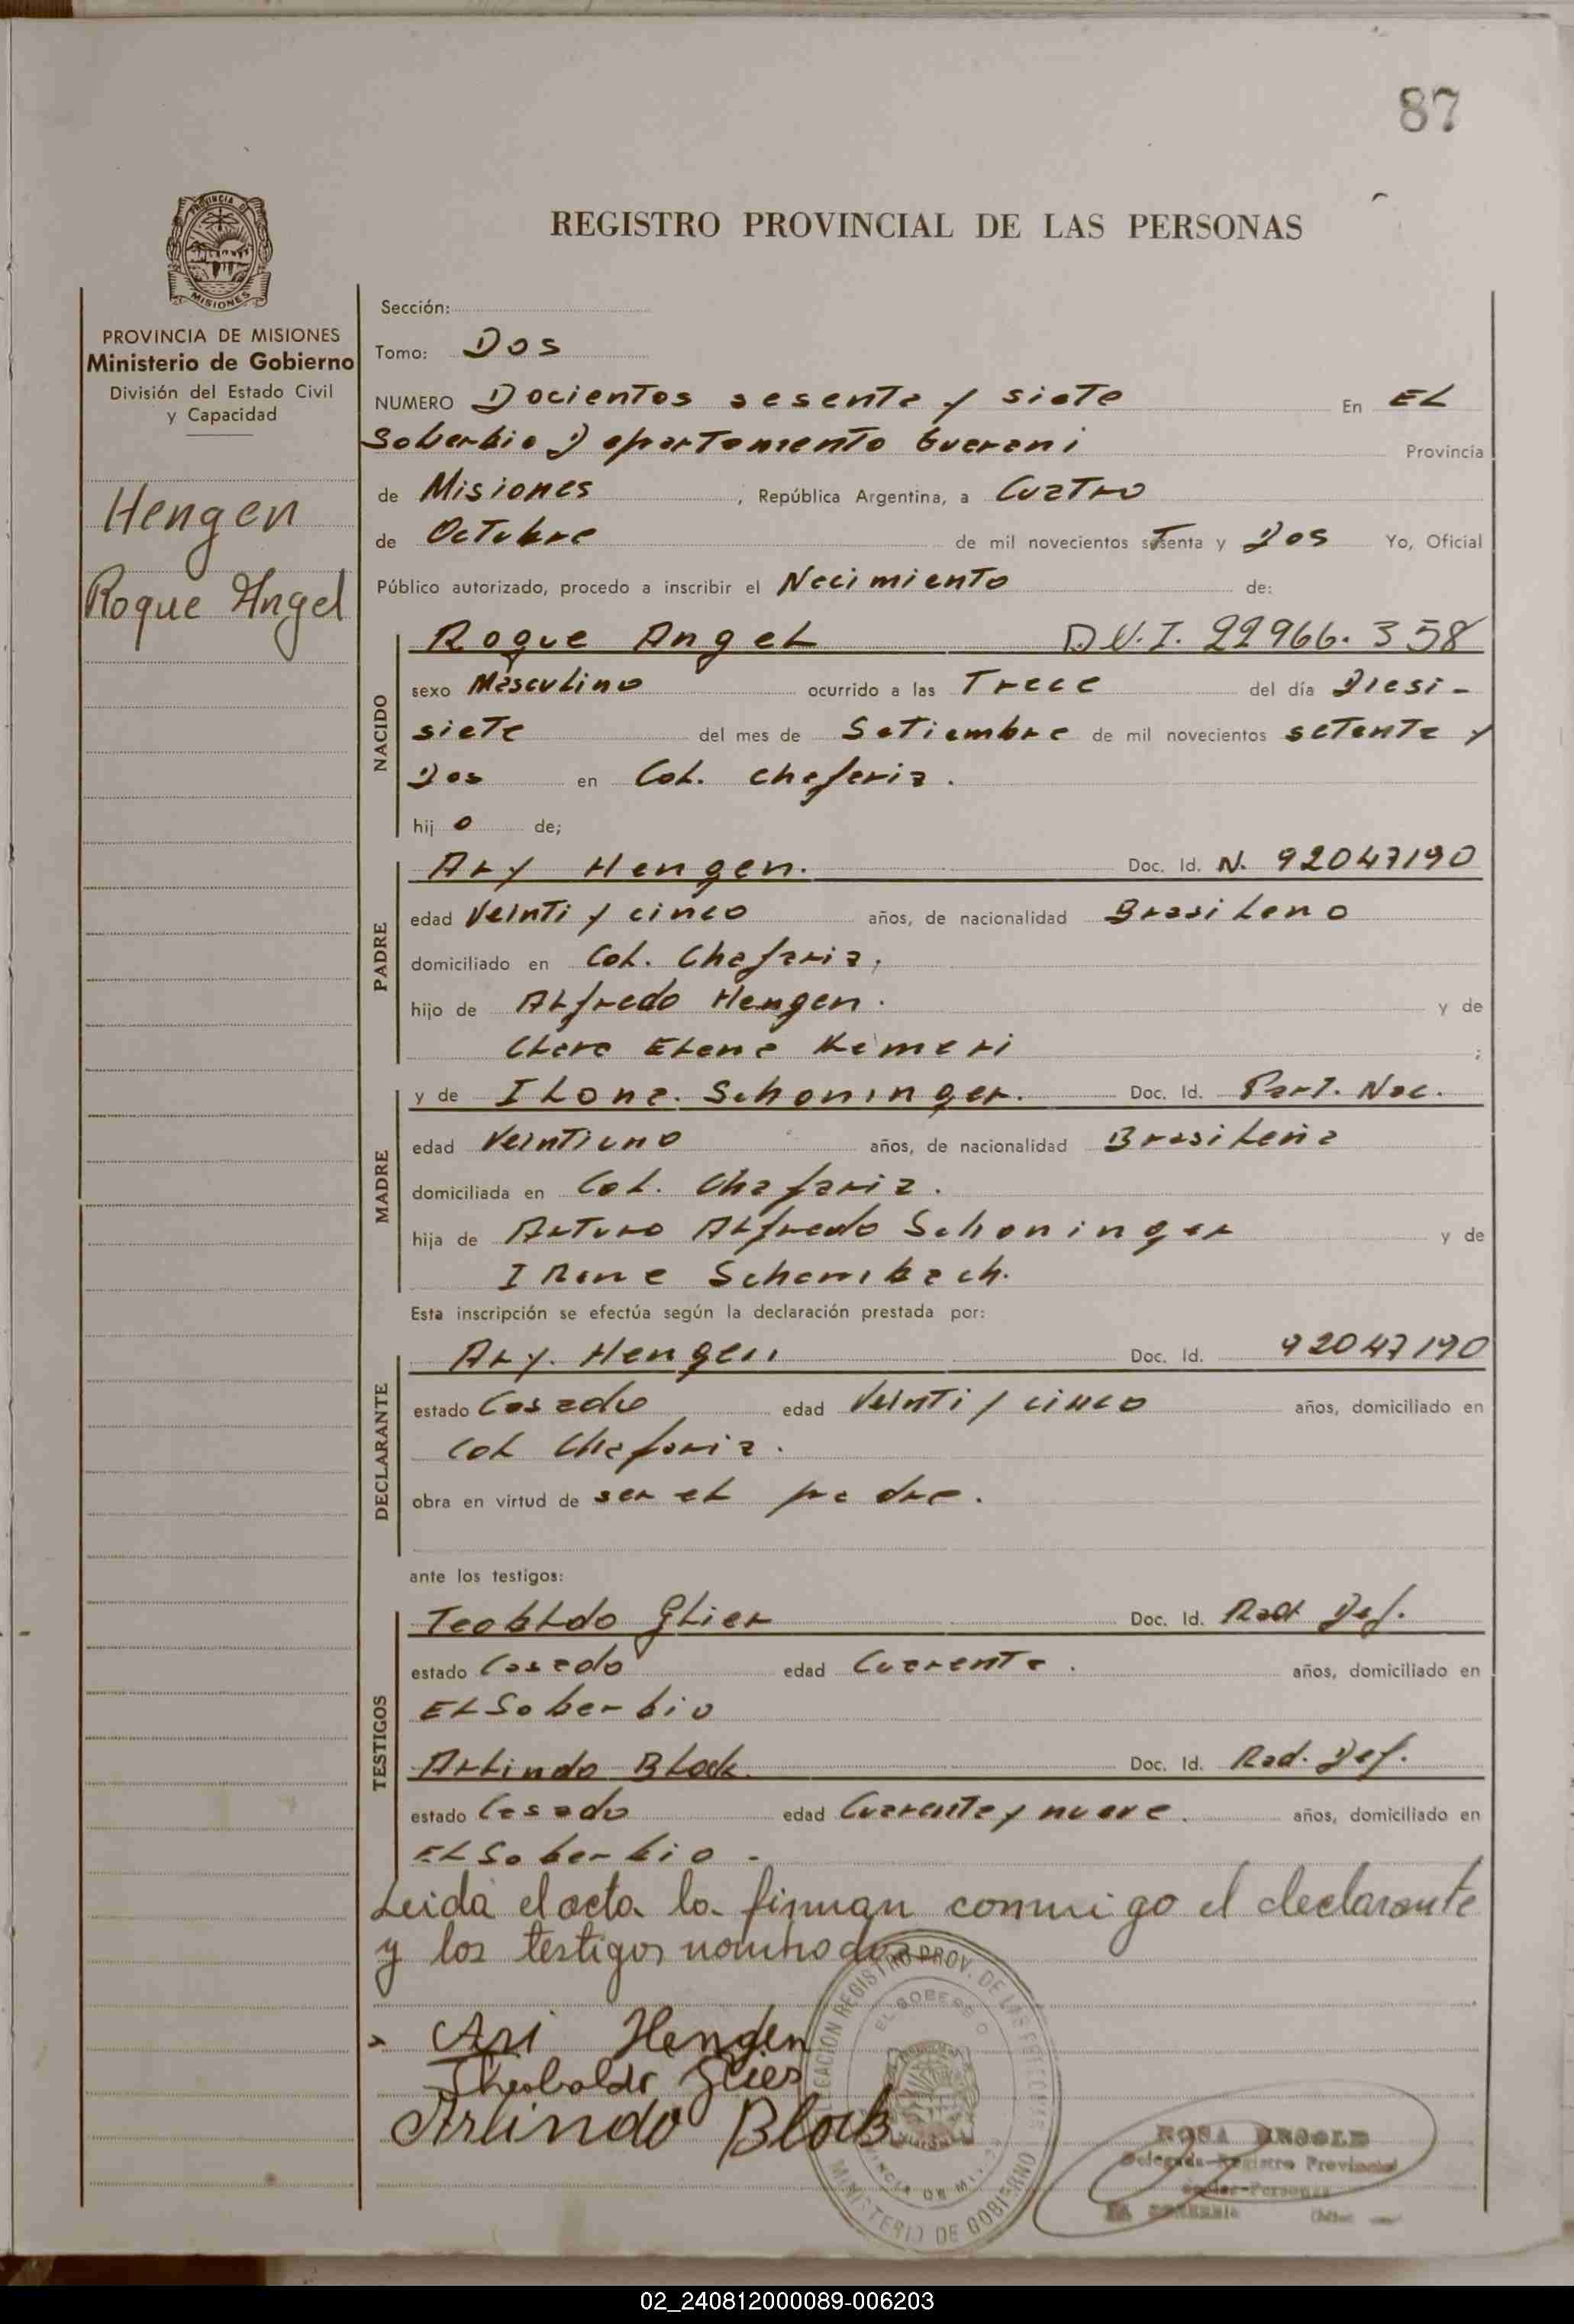 87
REGISTRO PROVINCIAL DE LAS PERSONAS
PROVINCIA DE MISIONES
PROVINCIA DE MISIONES
Ministerio de Gobierno
División del Estado Civil
y Capacidad
Hengen
Roque Angel
Sección:
Tomo: Dos
NUMERO Docientos sesenta y siete En EL
Soberbio Departamento Guarani Provincia
de Misiones, República Argentina, a Cuatro
de Octubre de mil novecientos setenta y Dos Yo, Oficial
Público autorizado, procedo a inscribir el Nacimiento de:
NACIDO
Roque Angel D.N.I. 22966.358
sexo Masculino ocurrido a las Trece del día Diesi-
siete del mes de Setiembre de mil novecientos setenta y
Dos en Col. Chafariz.
hij o de;
PADRE
Ary Hengen. Doc. Id. N. 92047190
edad Veinti y cinco años, de nacionalidad Brasileno
domiciliado en Col. Chafariz,
hijo de Alfredo Hengen. y de
Clara Elena ;
MADRE
y de Ilona. Schoninger. Doc. Id. Part. Nac.
edad Veintiuno años, de nacionalidad Brasileña
domiciliada en Col. Chafariz.
hija de Arturo Alfredo Schoninger y de
Irene
Esta inscripción se efectúa según la declaración prestada por:
DECLARANTE
Ary. Hengen Doc. Id. 92047190
estado Casado edad Veinti y cinco años, domiciliado en
Col Chafariz.
obra en virtud de ser el padre.
ante los testigos:
TESTIGOS
Teobldo Glier Doc. Id. Rad. Def.
estado Casado edad Cuarenta. años, domiciliado en
EL Soberbio
Arlindo Block. Doc. Id. Rad. Def.
estado Casado edad Cuarenta y nueve. años, domiciliado en
EL Soberbio.
Leida el acta la firman conmigo el declarante
y los testigos nombrados
Ari Hengen
Theobaldo Glier
Arlindo Block
DELEGACION REGISTRO PROV. DE LAS PERSONAS
EL SOBERBIO
PROVINCIA DE MISIONES
MINISTERIO DE GOBIERNO
ROSA
Delegada Registro Provincial
de las Personas
EL SOBERBIO
02_240812000089-006203